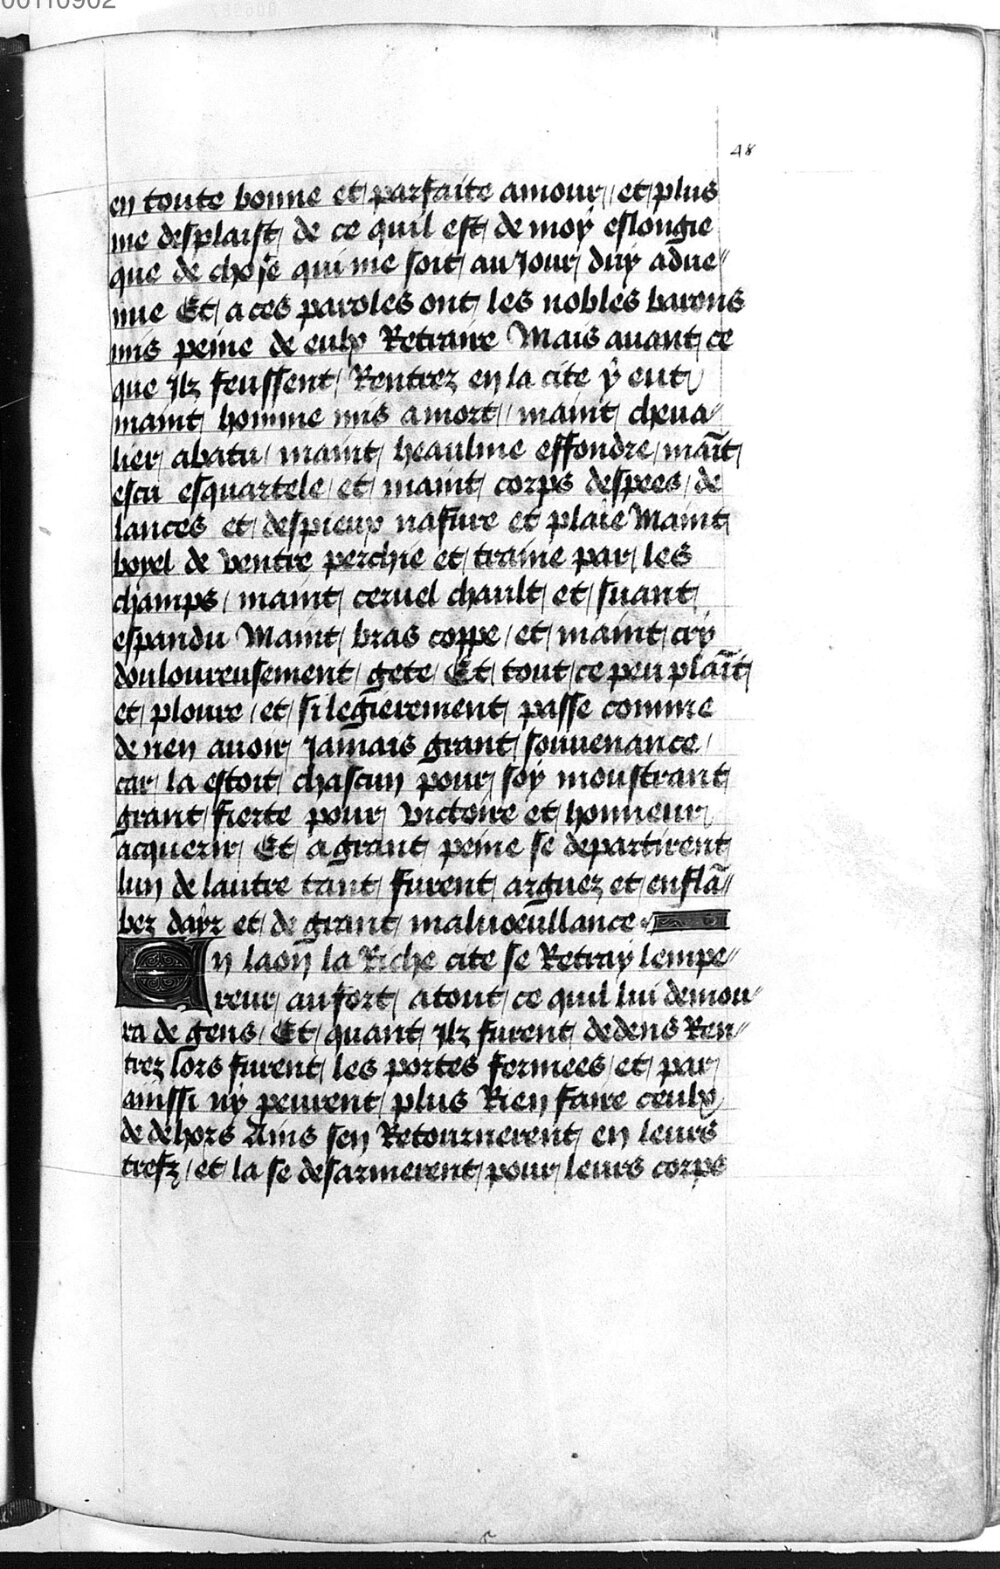 00110902
48
en toute bonne et parfaite amour / et plus
me desplaist de ce quil est de moy eslongie
que de chose qui me soit au Jour duy adue〃
nue Et a ces paroles ont les nobles barons
mis peine de eulx Retraire Mais auant ce
que Jlz feussent Rentrez en la cite y eut
maint homme mis a mort / maint cheua〃
lier abatu / maint heaulme effondre / mai͞t
escu esquartele / et maint corps despees / de
lances et despieux nafure et plaie Maint
boyel de ventre perchie et traine par les
champs / maint ceruel chault et suant
espandu Maint bras coppe / et maint cry
douloureusement gete Et tout ce peu plai͞t
et ploure / et si legierement passe comme
de nen auoir Jamais grant souuenance /
car la estoit chascun pour soy moustrant
grant fierte pour victoire et honneur
acquerir Et a grant peine se departirent
lun de lautre tant furent arguez et enfla͞〃
bez dayr et de grant maluoeullance
En laon la Riche cite se Retray lempe〃
reur au fort atout ce quil lui demou〃
ra de gens / Et quant Jlz furent dedens Ren〃
trez lors furent les portes fermees / et par
ainssi ny peurent plus Rien faire ceulx
de dehors Ains sen Retournerent en leurs
trefz / et la se desarmerent pour leurs corps